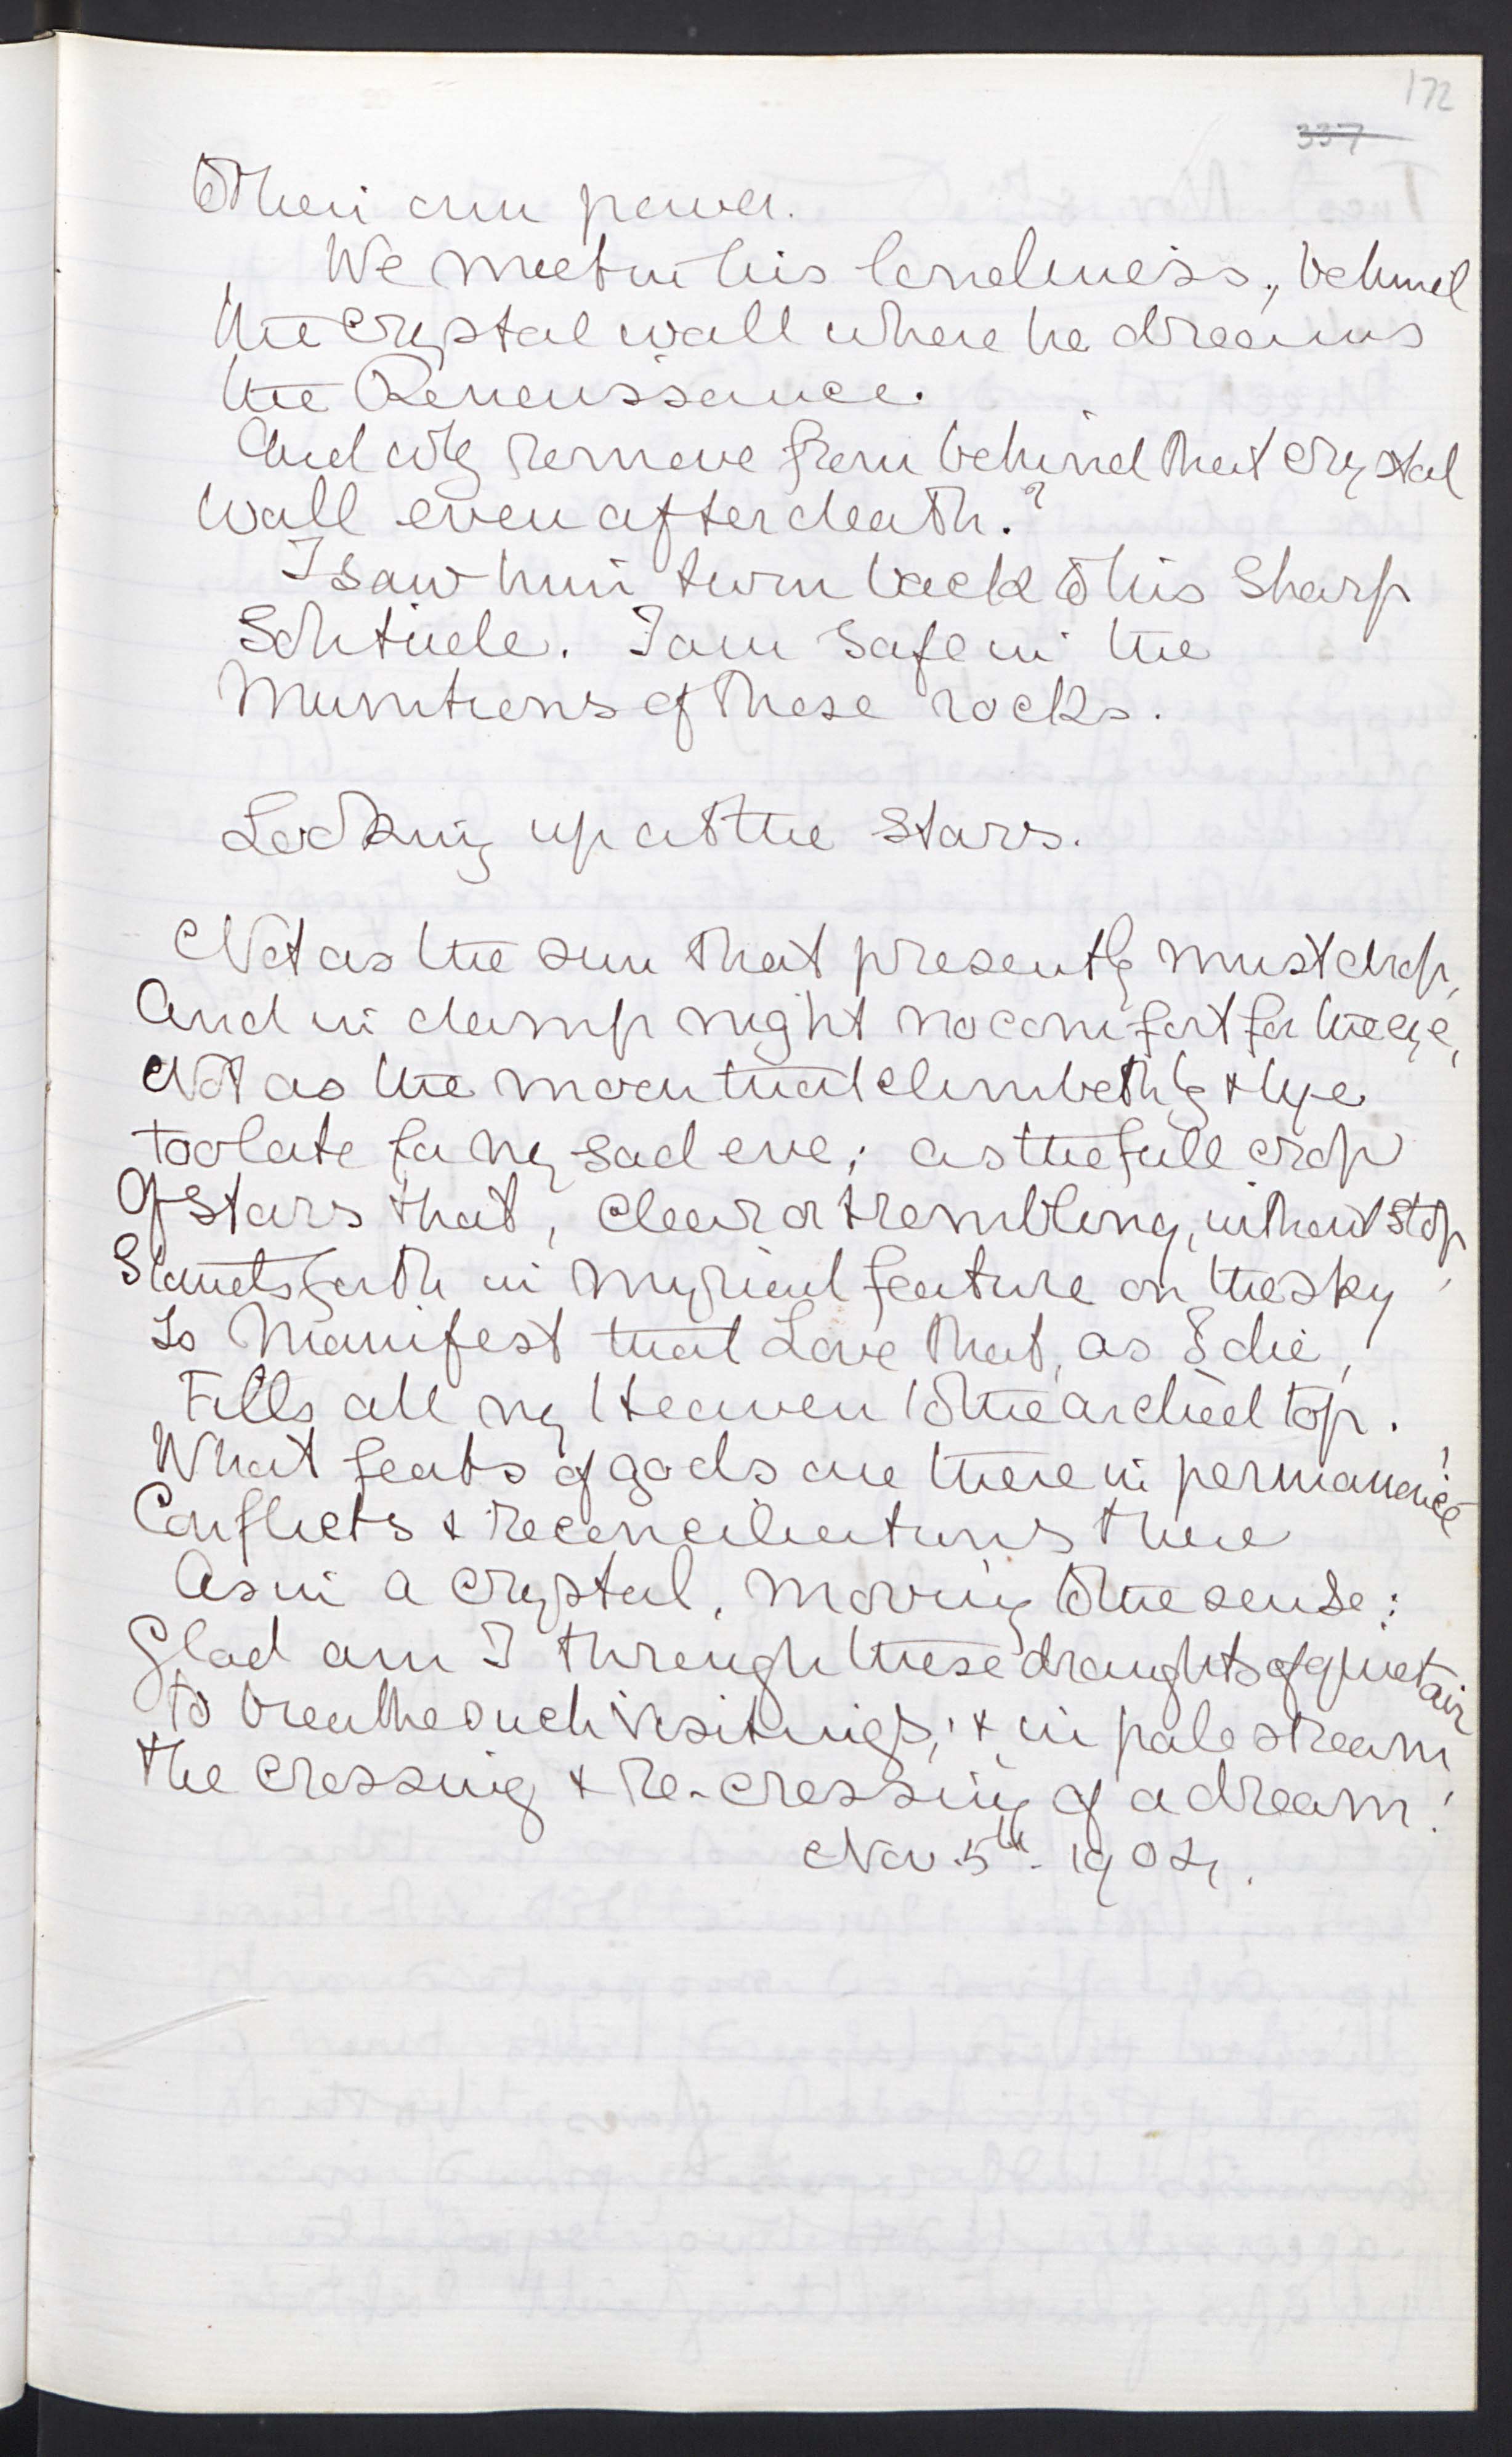 172
337
to their own power.
We meet in his loneliness, behind
the crystal wall where he dreams
the Renaissance.
And why remove from behind that crystal
wall even after death?
I saw him turn back to his sharp
Solitude. I am safe in the
Munitions of these rocks.
Looking up at the stars.
Not as the sun that presently must drop,
And in damp night no comfort for the eye,
Not as the moon that climbeth by & bye
too late for my sad eve; as the full crop
Of stars that, clear or trembling, without stop
Stands forth in myriad feature on the sky,
So Manifest that Love that, as I die,
Fills all my Heaven to the archèd top.
What feats of gods are there in permanence!
Conflicts & reconciliations there
As in a crystal, moving to the sense:
Glad am I through these draughts of quiet air
to breathe such visitings, & in pale stream
the crossing & re-crossing of a dream!
Nov 5th. 1904.